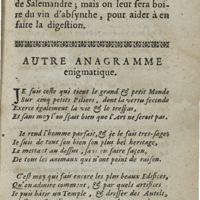 de Salemandre; mais on leur fera boi-
re du vin d'absynthe, pour aider à en
faire la digestion.
AUTRE ANAGRAMME
enigmatique.
JE suis celle qui tient le grand & petit Monde
Sur cinq petits Piliers, dont la vertu feconde
Exerce également la vie & le trespas,
Et sans moy l'on sçait bien que l'Art ne seroit pas.
Je rend l'homme parfait, & je le fais tres-sage
Je suis de tout son bien son plus bel heritage,
Le mettant au dessus, sans en faire façon,
De tous les animaux qui n'ont point de raison.
C'est moy qui fais encore les plus beaux Edifices,
Qu'on admire comment, & par quels artifices
Je puis bâtir un Temple, & dresser des Autels,